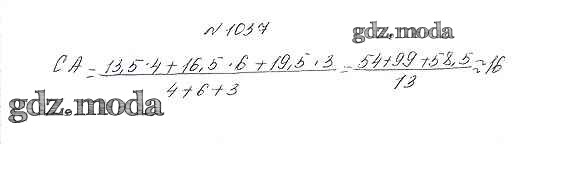 №1037
gdz.moda
CA = (13,5·4+16,5·6+19,5·3)/(4+6+3) = (54+99+58,5)/13 ≈ 16
gdz.moda